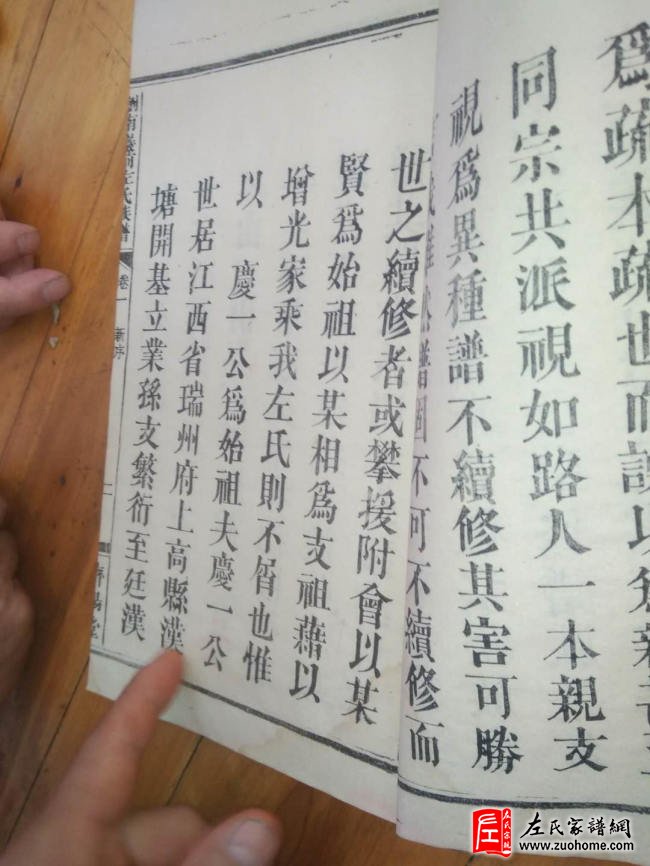 爲疏本疏也而
同宗共派視如路人一本親支
視爲異種譜不續修其害可勝
不可不續修而
世之續修者或攀援附會以某
賢爲始祖以某相爲支祖藉以
增光家乘我左氏則不屑也惟
以 慶一公爲始祖夫慶一公
世居江西省瑞州府上高縣漢
塘開基立業孫支繁衍至廷漢
南 左氏族譜 卷一 新序 堂
左氏家譜網
www.zuohome.com